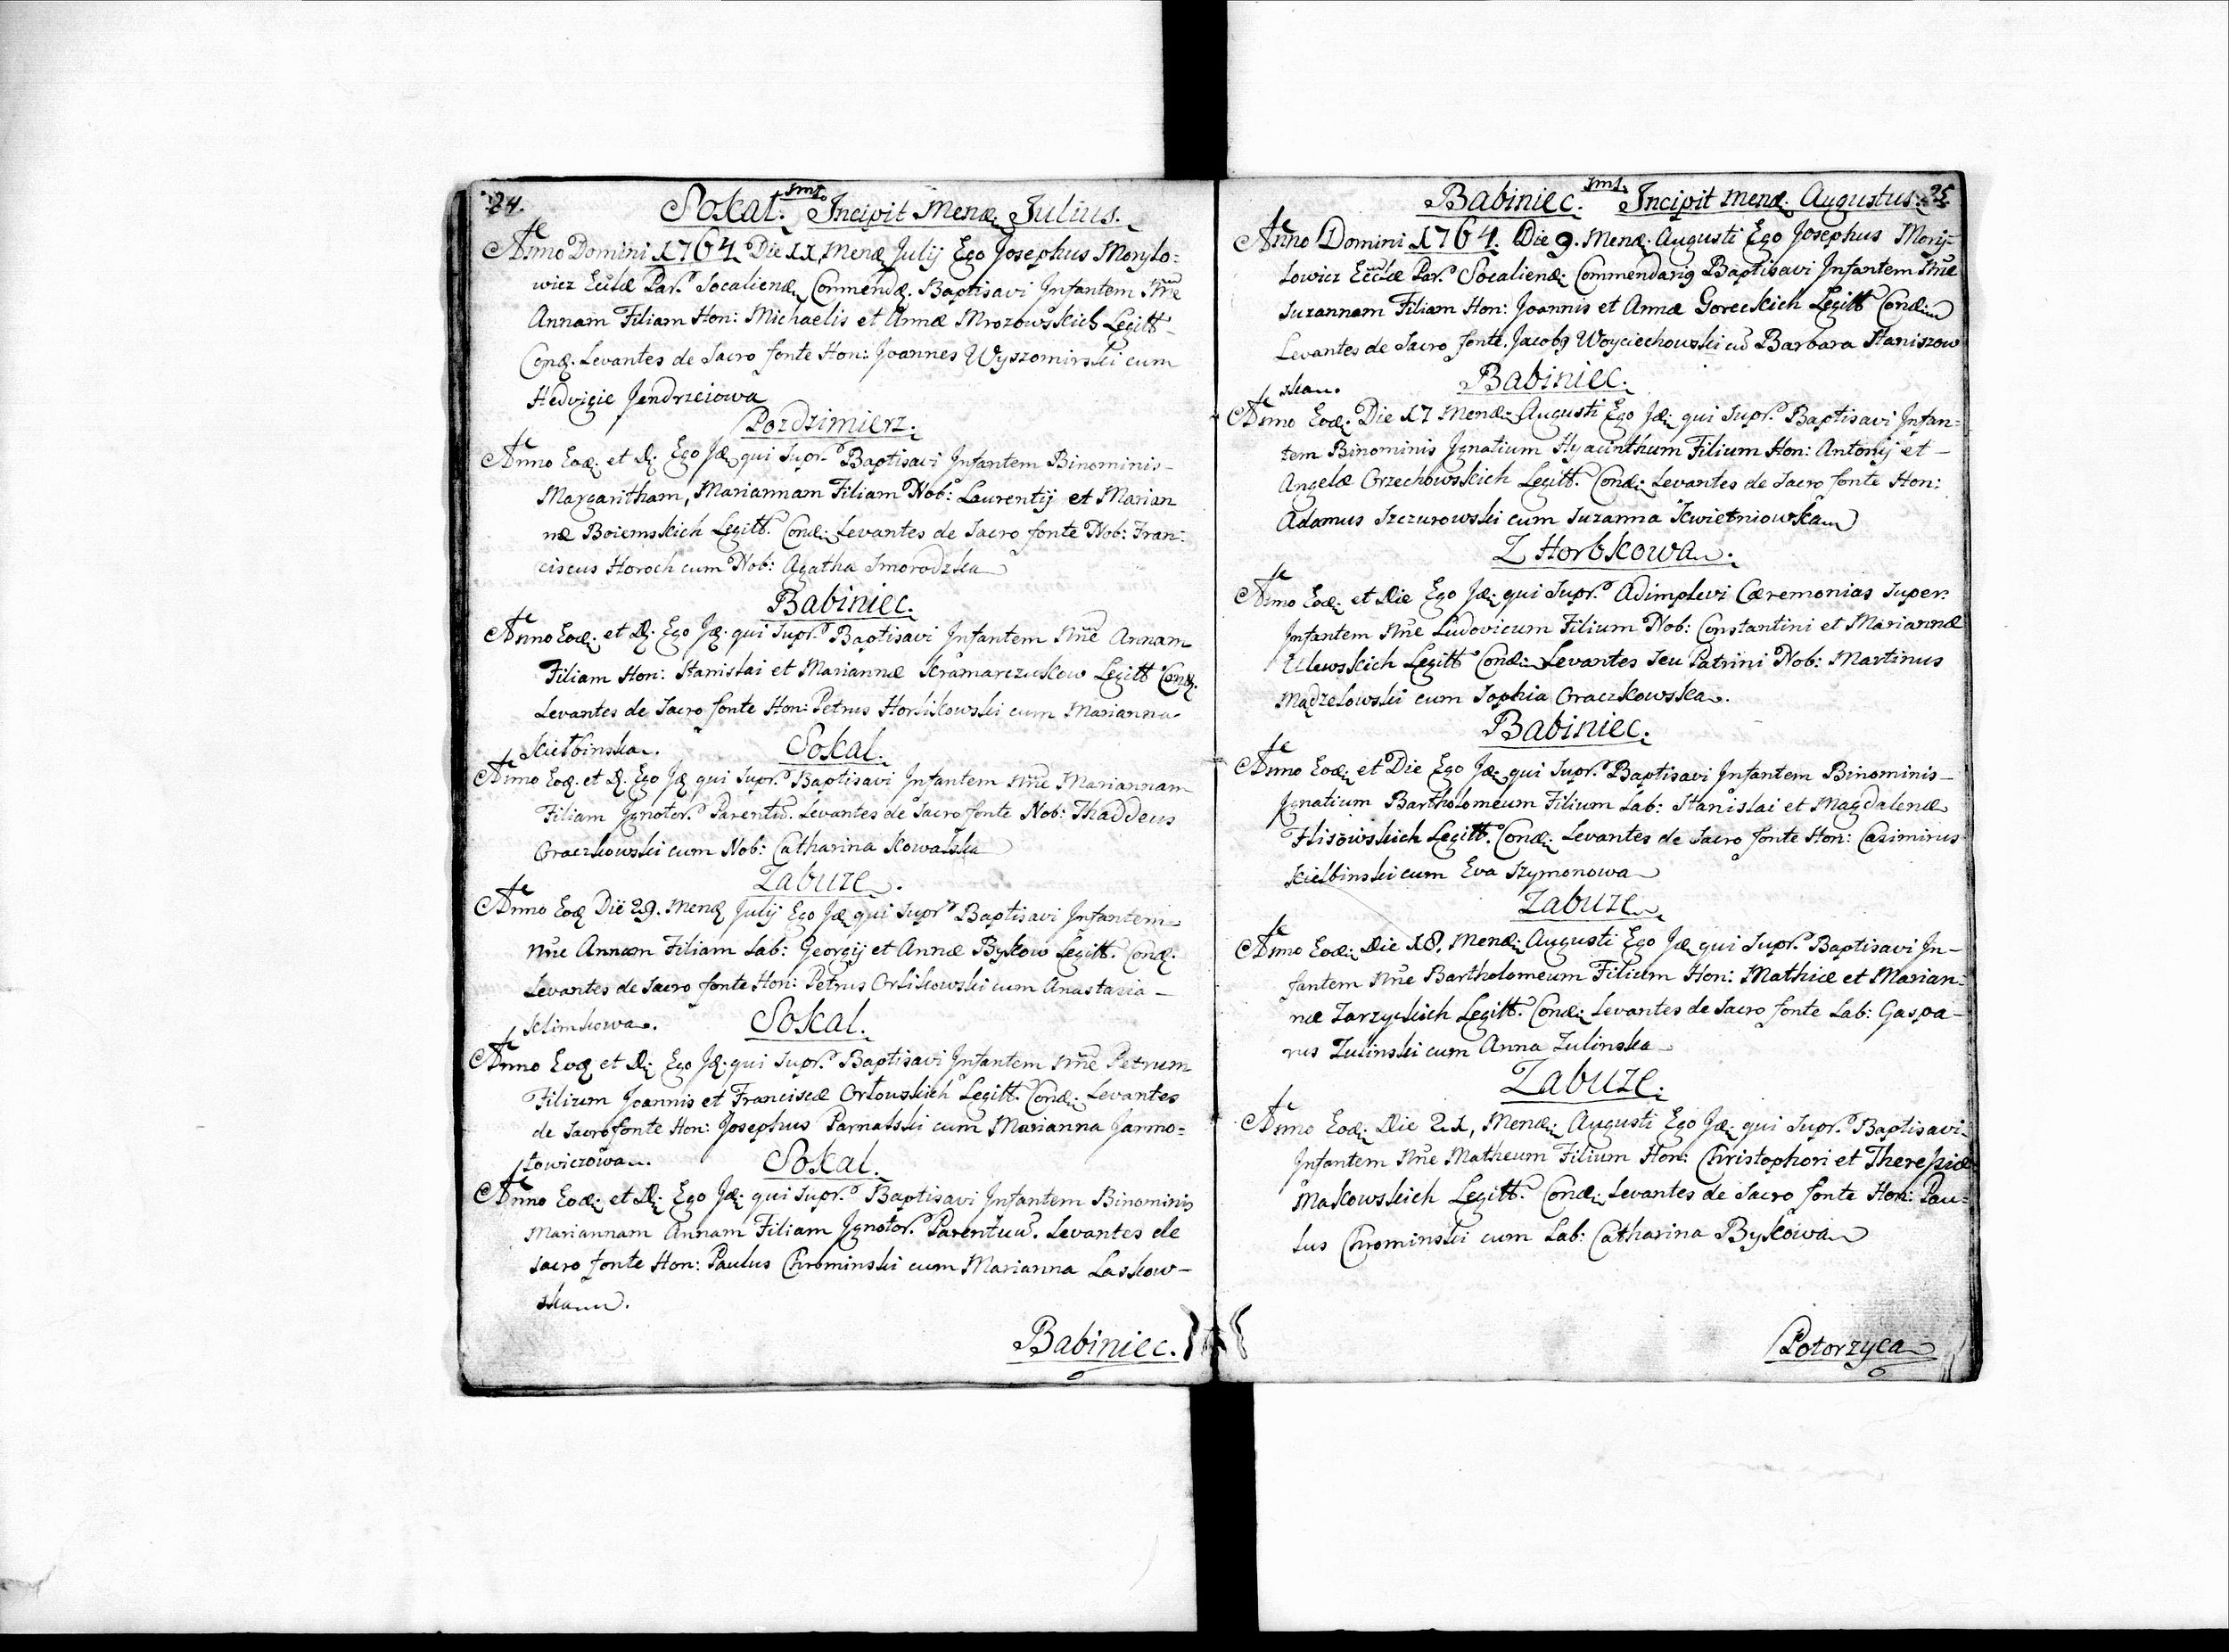 24. Sokal. Jmt. Incipit Menæ. Julius.
Anno Domini 1764 Die 11, Menæ Julij Ego Josephus Morylo=
wicz Eccłæ Par. Socalienæ Commendæ. Baptisavi Infantem Nne
Annam Filiam Hon: Michaelis et Annæ Mrozowskich Legitt
Conæ. Levantes de Sacro fonte Hon: Joannes Wyszomirski cum
Hedvigie Jendrzeiowa
Pozdzimierz.
Anno Eoæ. et D. Ego Jæ qui Supr. Baptisavi Infantem Binominis
Margaritham, Mariannam Filiam Nob: Laurentij et Marian
næ Boiemskich Legitt. Conæ. Levantes de Sacro fonte Nob: Fran-
ciscus Horoch cum Nob: Agatha Smorodzka
Babiniec.
Anno Eoæ. et D. Ego Jæ. qui Supr. Baptisavi Infantem Nne Annam
Filiam Hon: Stanislai et Mariannæ Kramarczukow Legitt Conæ.
Levantes de Sacro fonte Hon: Petrus Horlikowski cum Marianna
Kiełbinska.
Sokal.
Anno Eoæ. et D. Ego Jæ qui Supr. Baptisavi Infantem Nne Mariannam
Filiam Ignotor. Parentū. Levantes de Sacro fonte Nob: Thaddeus
Graczkowski cum Nob: Catharina Kowalska
Zabuze.
Anno Eoæ Die 29. Menæ Julij Ego Jæ qui Supr. Baptisavi Infantem
Nne Annam Filiam Lab: Georgij et Annæ Bykow Legitt. Conæ.
Levantes de Sacro fonte Hon: Petrus Orlikowski cum Anastazia
Klimkowa.
Sokal.
Anno Eoæ et D. Ego Jæ. qui Supr. Baptisavi Infantem Nne Petrum
Filium Joannis et Franciscæ Orłowskich Legitt. Conæ. Levantes
de Sacro fonte Hon: Josephus Parnalski cum Marianna Jarmo=
łowiczowa.
Sokal.
Anno Eoæ. et D. Ego Jæ. qui Supr. Baptisavi Infantem Binominis
Mariannam Annam Filiam Ignotor. Parentuū. Levantes de
Sacro fonte Hon: Paulus Chrominski cum Marianna Laskow-
ska.
Babiniec.
Babiniec. Jmt. Incipit Menæ. Augustus. 25
Anno Domini 1764. Die 9. Menæ. Augusti Ego Josephus Mory=
lowicz Eccłæ Par. Socalienæ. Commendarig Baptisavi Infantem Nne
Suzannam Filiam Hon: Joannis et Annæ Goreckich Legitt Conæ.
Levantes de Sacro fonte. Jacobg Woyciechowski cū Barbara Staniszow
ska.
Babiniec.
Anno Eoæ. Die 17 Menæ. Augusti Ego Jæ. qui Supr. Baptisavi Infan=
tem Binominis Ignatium Hyacinthum Filium Hon: Antonij et
Angelæ Orzechowskich Legitt. Conæ. Levantes de Sacro fonte Hon:
Adamus Szczurowski cum Suzanna Kwietniowska
Z Horbkowa.
Anno Eoæ. et Die Ego Jæ. qui Supr. Adimplevi Cæremonias Super
Infantem Nne Ludovicum Filium Nob: Constantini et Mariannæ
Ulewskich Legitt Conæ. Levantes Seu Patrini Nob: Martinus
Mądzelowski cum Sophia Graczkowska.
Babiniec.
Anno Eoæ. et Die Ego Jæ. qui Supr. Baptisavi Infantem Binominis
Ignatium Bartholomeum Filium Lab: Stanislai et Magdalenæ
Flisowskich Legitt. Conæ. Levantes de Sacro fonte Hon: Casimirus
Kiełbinski cum Eva Szymonowa
Zabuze.
Anno Eoæ. Die 18. Menæ. Augusti Ego Jæ qui Supr. Baptisavi In-
fantem Nne Bartholomeum Filium Hon: Mathiæ et Marian=
næ Zarzyckich Legitt. Conæ. Levantes de Sacro fonte Lab: Gaspa-
rus Zulinski cum Anna Zulinska
Zabuze.
Anno Eoæ. Die 21, Menæ. Augusti Ego Jæ. qui Supr. Baptisavi
Infantem Nne Matheum Filium Hon: Christophori et Theresiæ
Makowskich Legitt. Conæ. Levantes de Sacro fonte Hon: Pau=
lus Chrominski cum Lab: Catharina Bykowa
Potorzyca